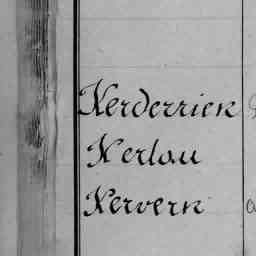 Kerderrien
Kerlau
Kervern